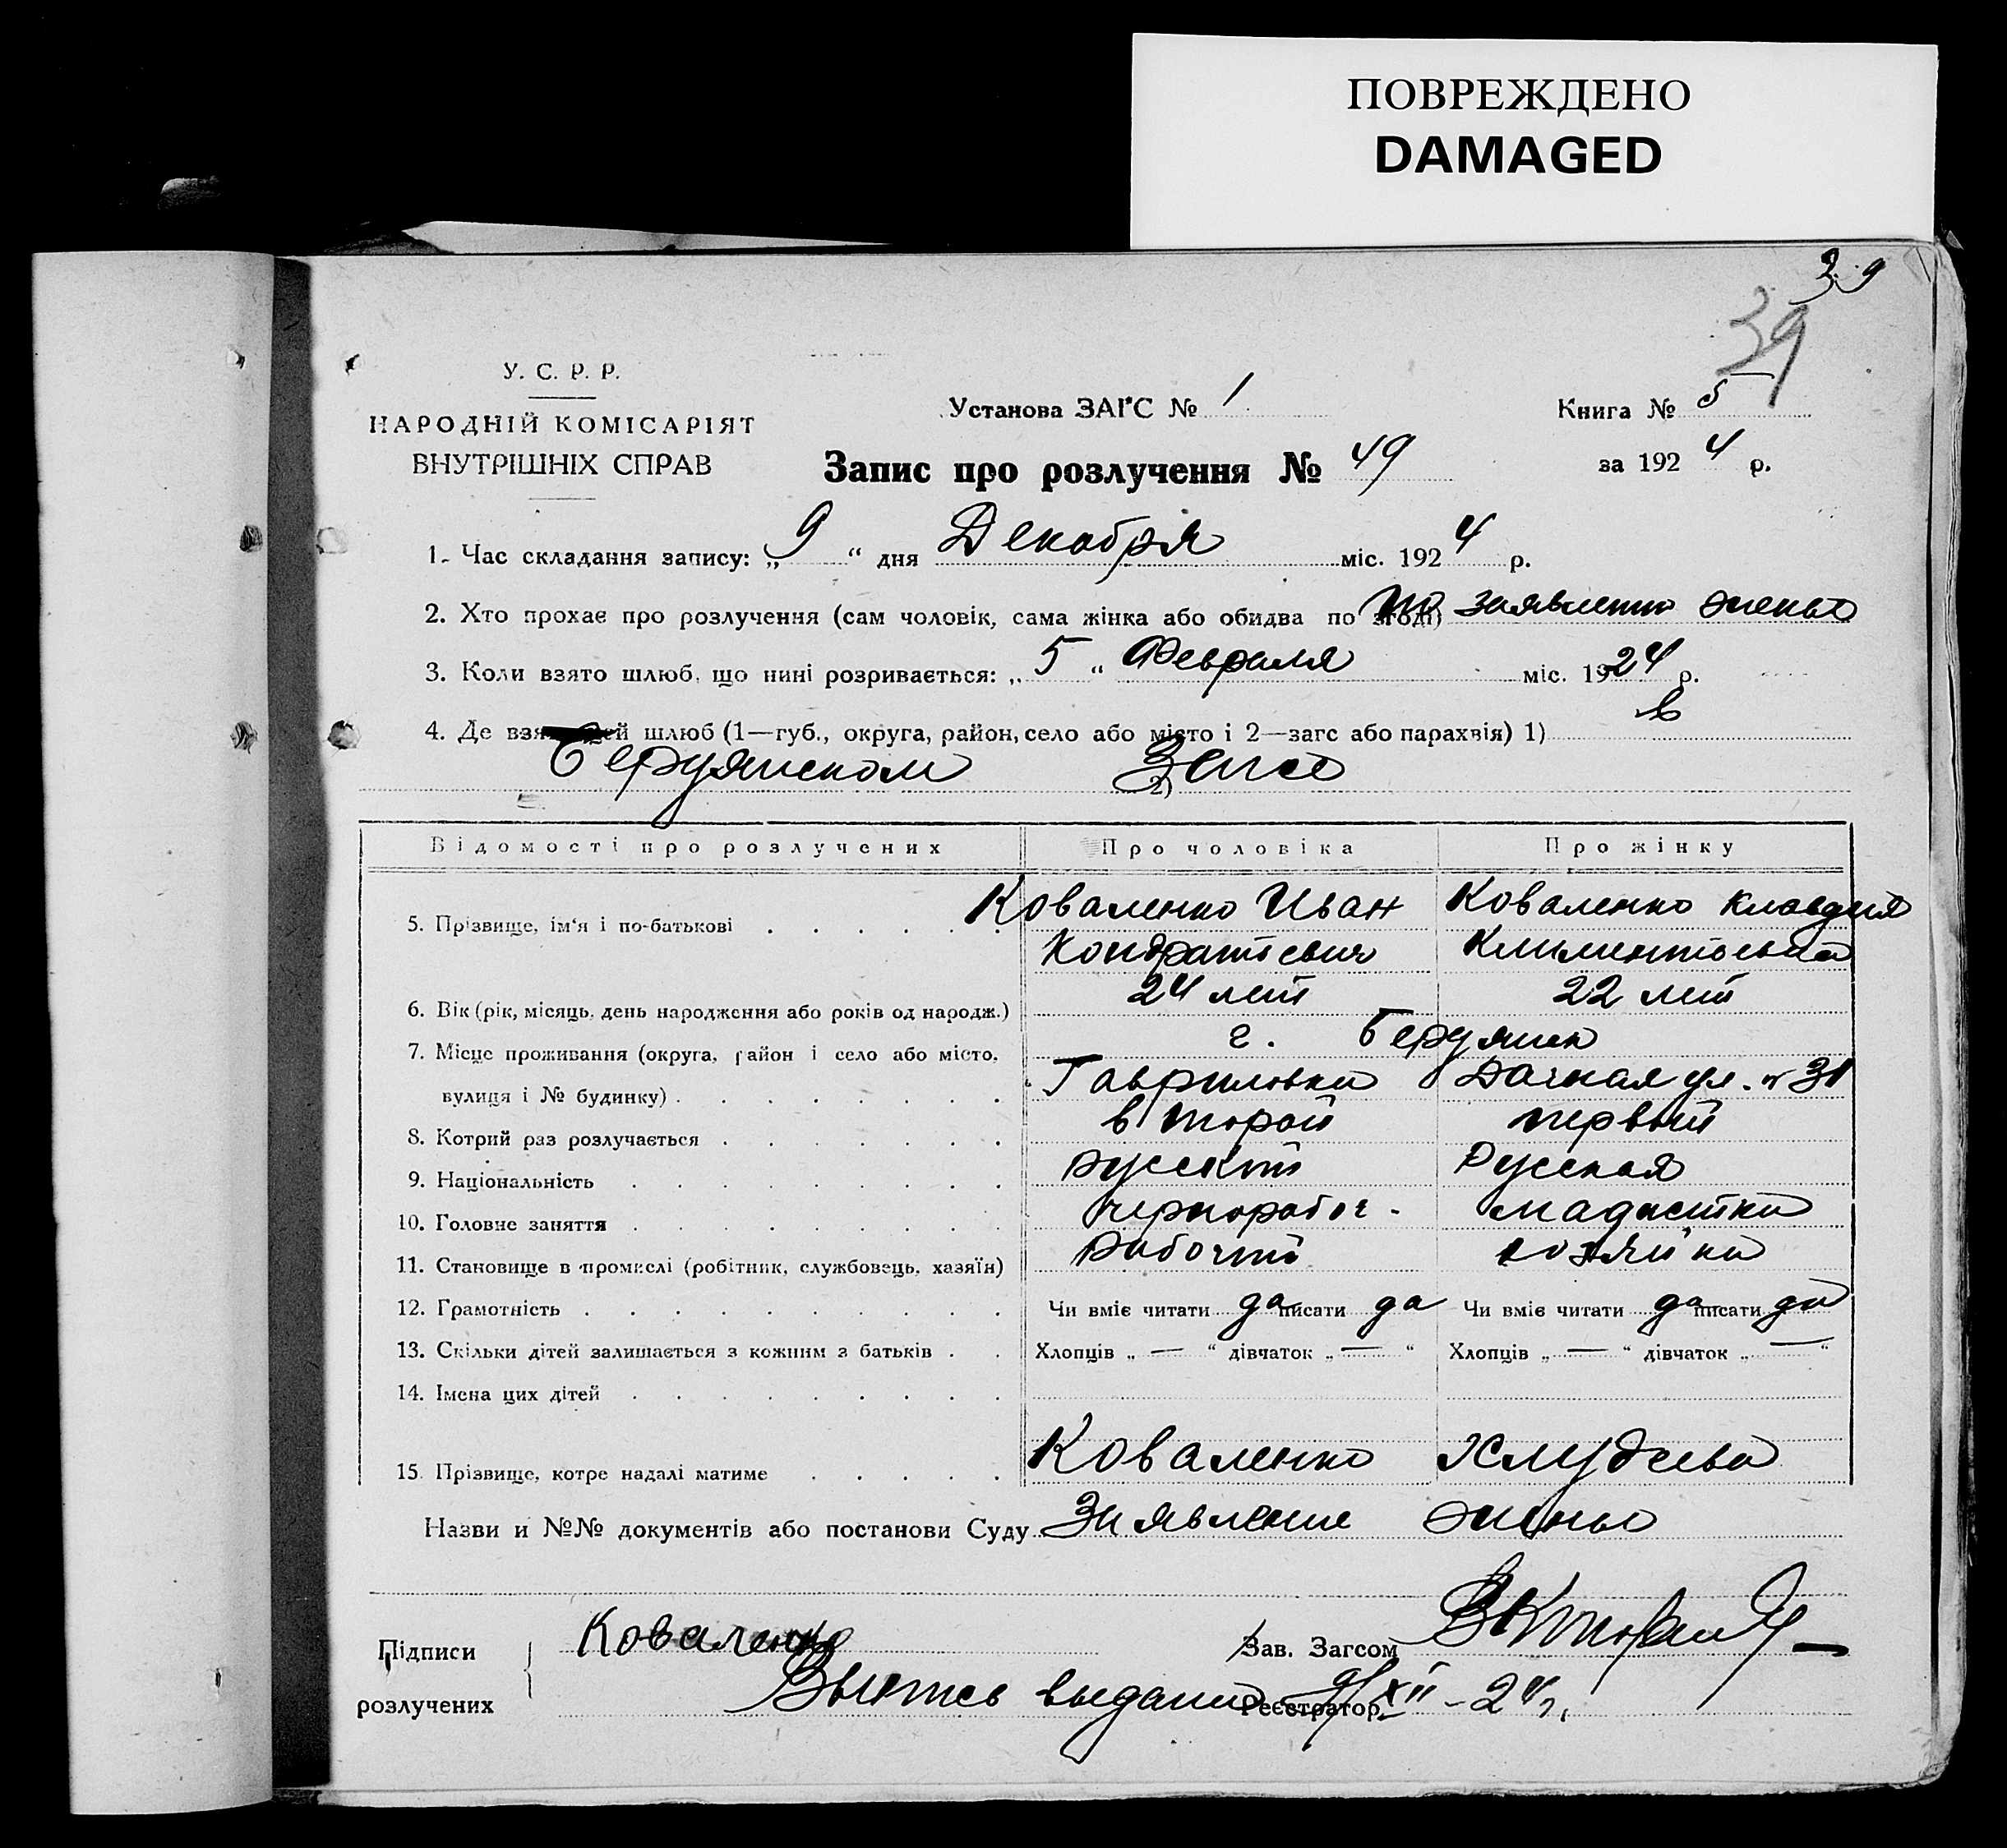 ПОВРЕЖДЕНО
DAMAGED
39
39
У. С. Р. Р.
НАРОДНІЙ КОМІСАРІЯТ
ВНУТРІШНІХ СПРАВ
Установа ЗАГС № 1
Книга № 5
за 1924 р.
Запис про розлучення № 49
1. Час складання запису: „9“ дня Декабря міс. 1924 р.
2. Хто прохає про розлучення (сам чоловік, сама жінка або обидва по згоді) по заявлению жены
3. Коли взято шлюб, що нині розривається: „5“ Февраля міс. 1924 р.
4. Де взято цей шлюб (1—губ., округа, район, село або місто і 2—загс або парахвія) 1) в
Бердянском 2) Загсе
Відомості про розлучених Про чоловіка Про жінку
5. Прізвище, ім'я і по-батькові Коваленко Иван Коваленко Клавдия
Кондратьевич Климентьевна
6. Вік (рік, місяць, день народження або років од народж.) 24 лет 22 лет
7. Місце проживання (округа, район і село або місто, г. Бердянск
вулиця і № будинку) Гавриловка Дачная ул. № 31
8. Котрий раз розлучається второй первый
9. Національність русский Русская
10. Головне заняття чернорабоч. мадистка
11. Становище в промислі (робітник, службовець, хазяїн) рабочий хозяйка
12. Грамотність Чи вміє читати да писати да Чи вміє читати да писати да
13. Скільки дітей залишається з кожним з батьків Хлопців „—“ дівчаток „—“ Хлопців „—“ дівчаток „—“
14. Імена цих дітей
15. Прізвище, котре надалі матиме Коваленко Хлудеева
Назви и №№ документів або постанови Суду Заявление жены
Підписи розлучених Коваленко
Зав. Загсом
Реєстратор
Выпись выдана 9/XII-24 г.